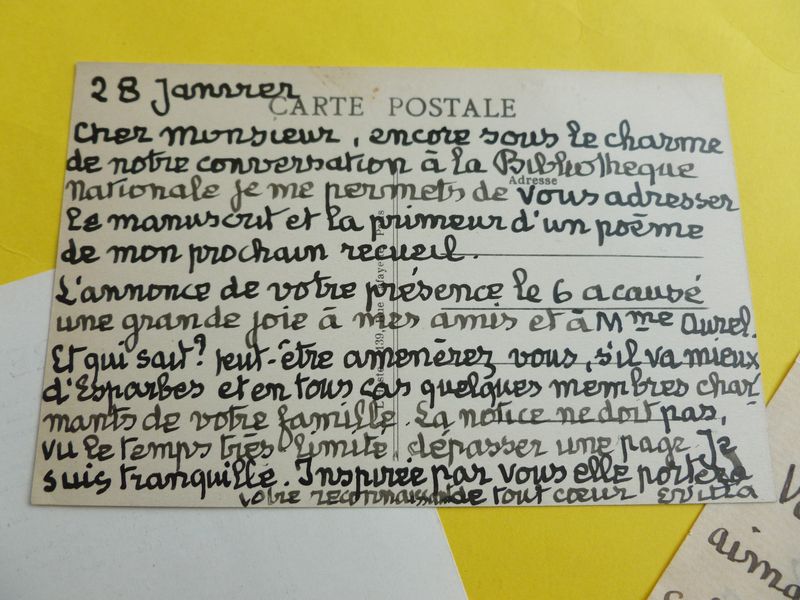 28 Janvier
CARTE POSTALE
Cher monsieur, encore sous le charme
de notre conversation à la Bibliothèque
Adresse
Nationale je me permets de vous adresser
le manuscrit et la primeur d'un poème
de mon prochain recueil.
L'annonce de votre présence le 6 a causé
une grande joie à mes amis et à Mme Aurel.
Et qui sait? peut-être amenèrez vous, s'il va mieux
d'Esparbes et en tous cas quelques membres char
mants de votre famille. La notice ne doit pas,
vu le temps très limité, dépasser une page. Je
suis tranquille. Inspirée par vous elle portera
votre reconnaissante de tout cœur
aima